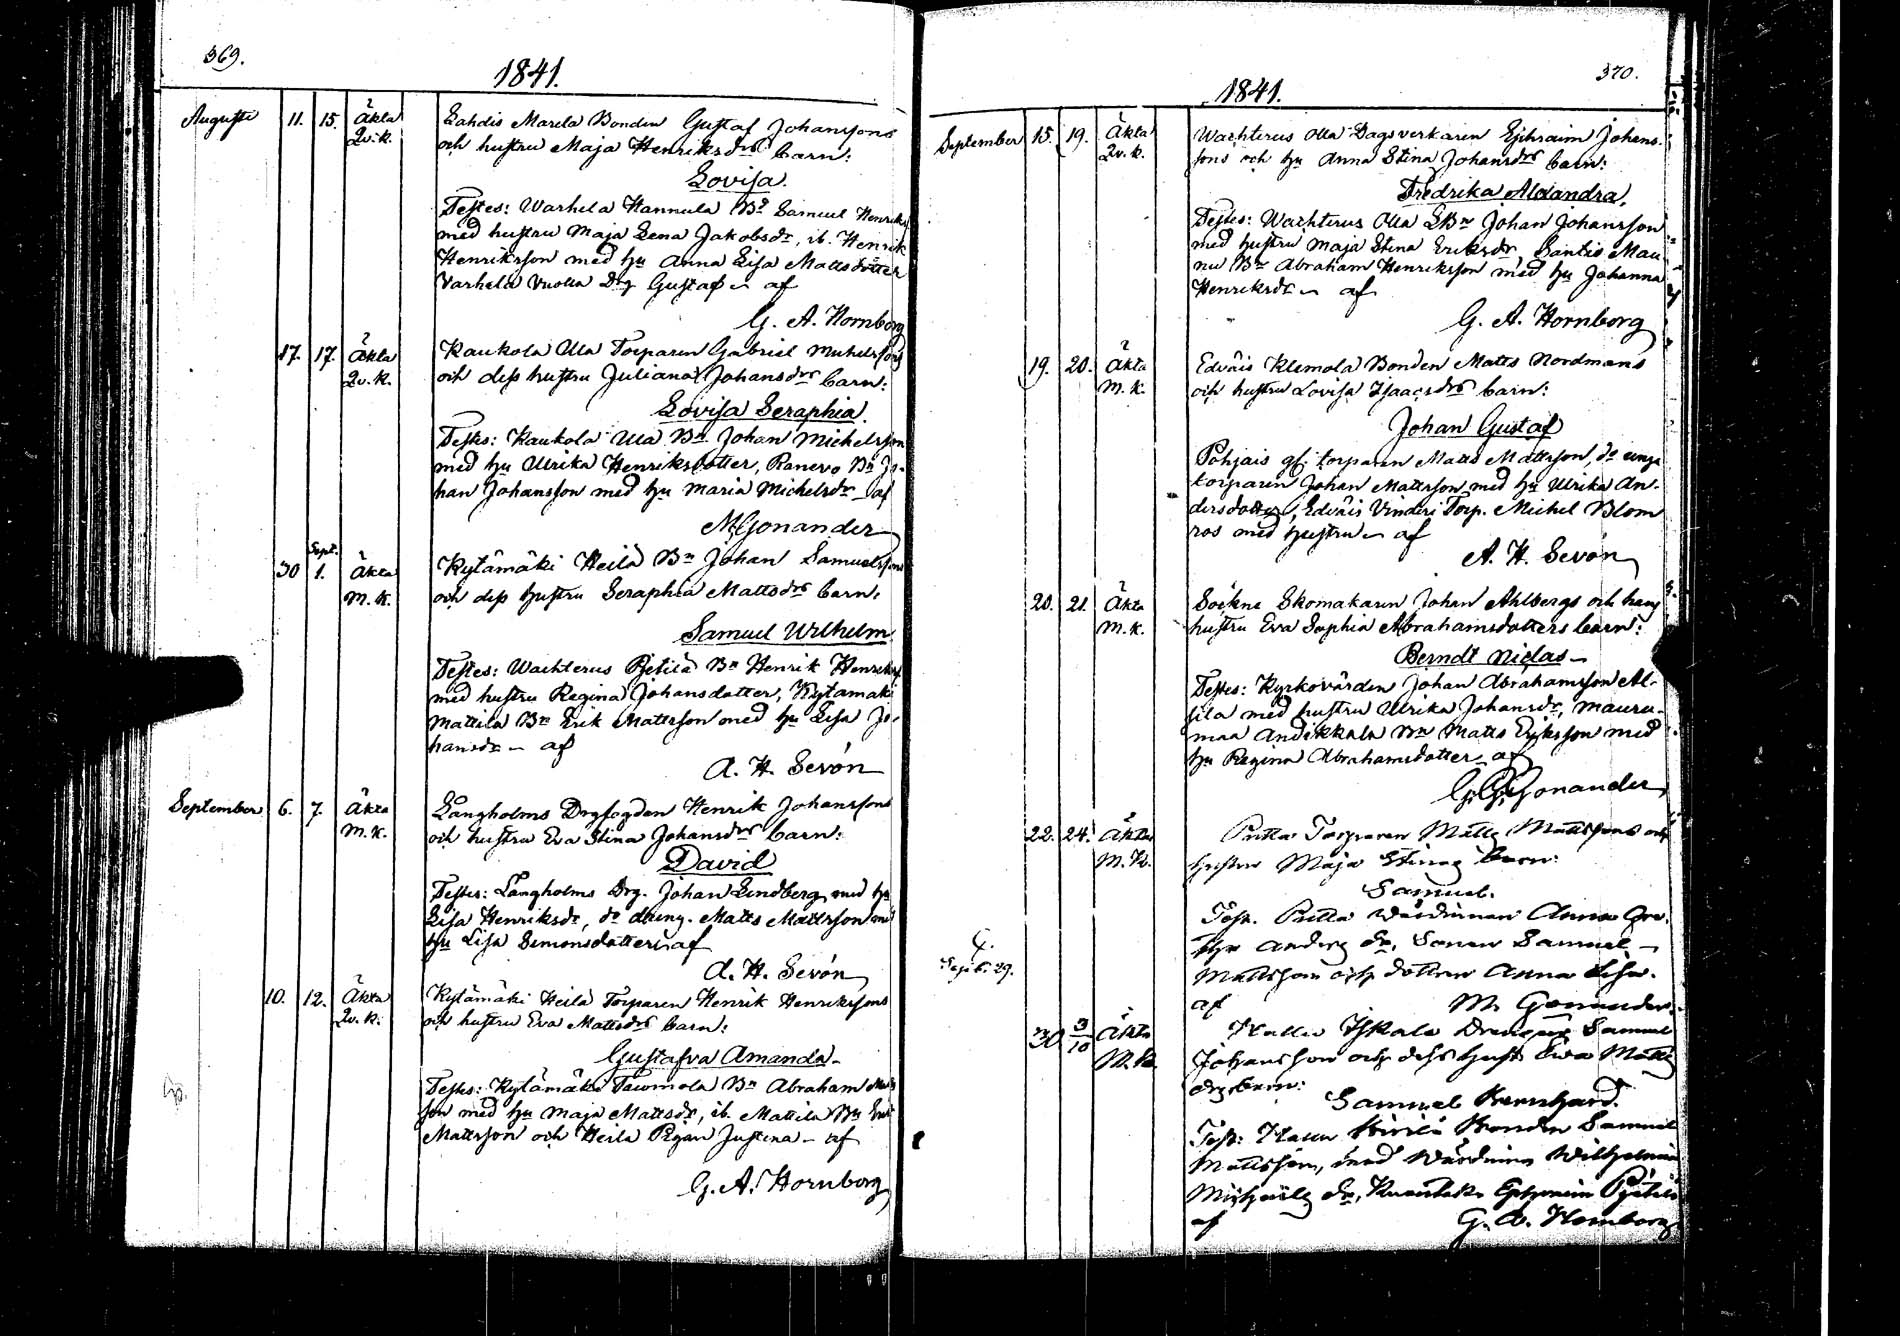 369.
1841.
Augusti 11. 15. Äkta Qv. K.
Lahdis Marila Bonden Gustaf Johanssons
och hustru Maja Henriksdrs barn:
Lovisa.
Testes: Warhela Hannula Bn Samuel Henriks
med hustru Maja Lena Jakobsdr, ib. Henrik
Henriksson med hu Anna Lisa Mattsdotter
Varhela Vuolla Drg Gustaf – af
G. A. Hornborg
17. 17. Äkta Qv. K.
Kaukola Ula Torparen Gabriel Michelssons
och dess hustru Juliana Johansdrs barn:
Lovisa Seraphia.
Testes: Kaukola Ula Bn Johan Michelsson
med hu Ulrika Henriksdotter, Ranero Bn Jo-
han Johansson med hu Maria Michelsdr af
M. Gonander
30 Sept. 1. Äkta M. K.
Kytämäki Heilä Bn Johan Samuelssons
och dess hustru Seraphia Mattsdrs barn:
Samuel Wilhelm
Testes: Wachterus Pjetilä Bn Henrik Henrikss.
med hustru Regina Johansdotter, Kytämäki
Mattila Bn Erik Mattsson med hu Lisa Jo-
hansdr – af
A. H. Sevón
September 6. 7. Äkta M. K.
Långholms Drgfogden Henrik Johanssons
och hustru Eva Stina Johansdrs barn:
David
Testes: Långholms Drg. Johan Lindberg med hu
Lisa Henriksdr, do dreng. Matts Mattsson med
hu Lisa Simonsdotter af
A. H. Sevón
10. 12. Äkta Qv. K.
Kytämäki Heilä Torparen Henrik Henrikssons
och hustru Eva Mattsdrs barn:
Gustafva Amanda –
Testes: Kytämäki Tuomola Bn Abraham Matts
son med hu Maja Mattsdr, ib. Mattila Bn Erik
Mattsson och Heilä Pigan Justina – af
G. A. Hornborg
370.
1841.
September 15. 19. Äkta Qv. K.
Wachterus Olla Dagsverkaren Ephraim Johans-
sons och hu Anna Stina Johansdrs barn:
Fredrika Alexandra.
Testes: Wachterus Olla Bn Johan Johansson
med hustru Maja Stina Eriksdr, Santio Mau-
nu Bn Abraham Henriksson med hu Johanna
Henriksdr – af
G. A. Hornborg
19. 20. Äkta M. K.
Edväis Klemola Bonden Matts Nordmans
och hustru Lovisa Isaacsdrs barn:
Johan Gustaf
Pohjais gl. torparen Matts Mattsson, do unga
torparen Johan Mattsson med hu Ulrika An-
dersdotter, Edväis Vinderi Torp. Michel Blom
ros med hustru – af
A. H. Sevón
20. 21. Äkta M. K.
Sockne Skomakaren Johan Ahlbergs och hans
hustru Eva Sophia Abrahamsdotters barn:
Berndt Niclas –
Testes: Kyrkovärden Johan Abrahamsson Al-
sila med hustru Ulrika Johansdr, Mauru-
maa Andikkala Bn Matts Eriksson med
hu Regina Abrahamsdotter – af
Gonander
22. 24. Äkta M. K.
Torparen Matts Mattssons och
hustru Maja Stinas barn:
Samuel.
Test. värdinnan Anna Gre-
tha Anders dr, Sonen Samuel –
Mattsson och dottren Anna Lisa.
af M. Gonander.
Sept. 29.
30 3/10 Äkta M. K.
Drengen Samuel
Johansson och dess hustr Eva Matts
drs barn:
Samuel Bernhard.
Test: Bonden Samuel
Mattsson, med Wärdinna Wilhelmina
Michaels dr, Ephraim
af G. A. Hornborg